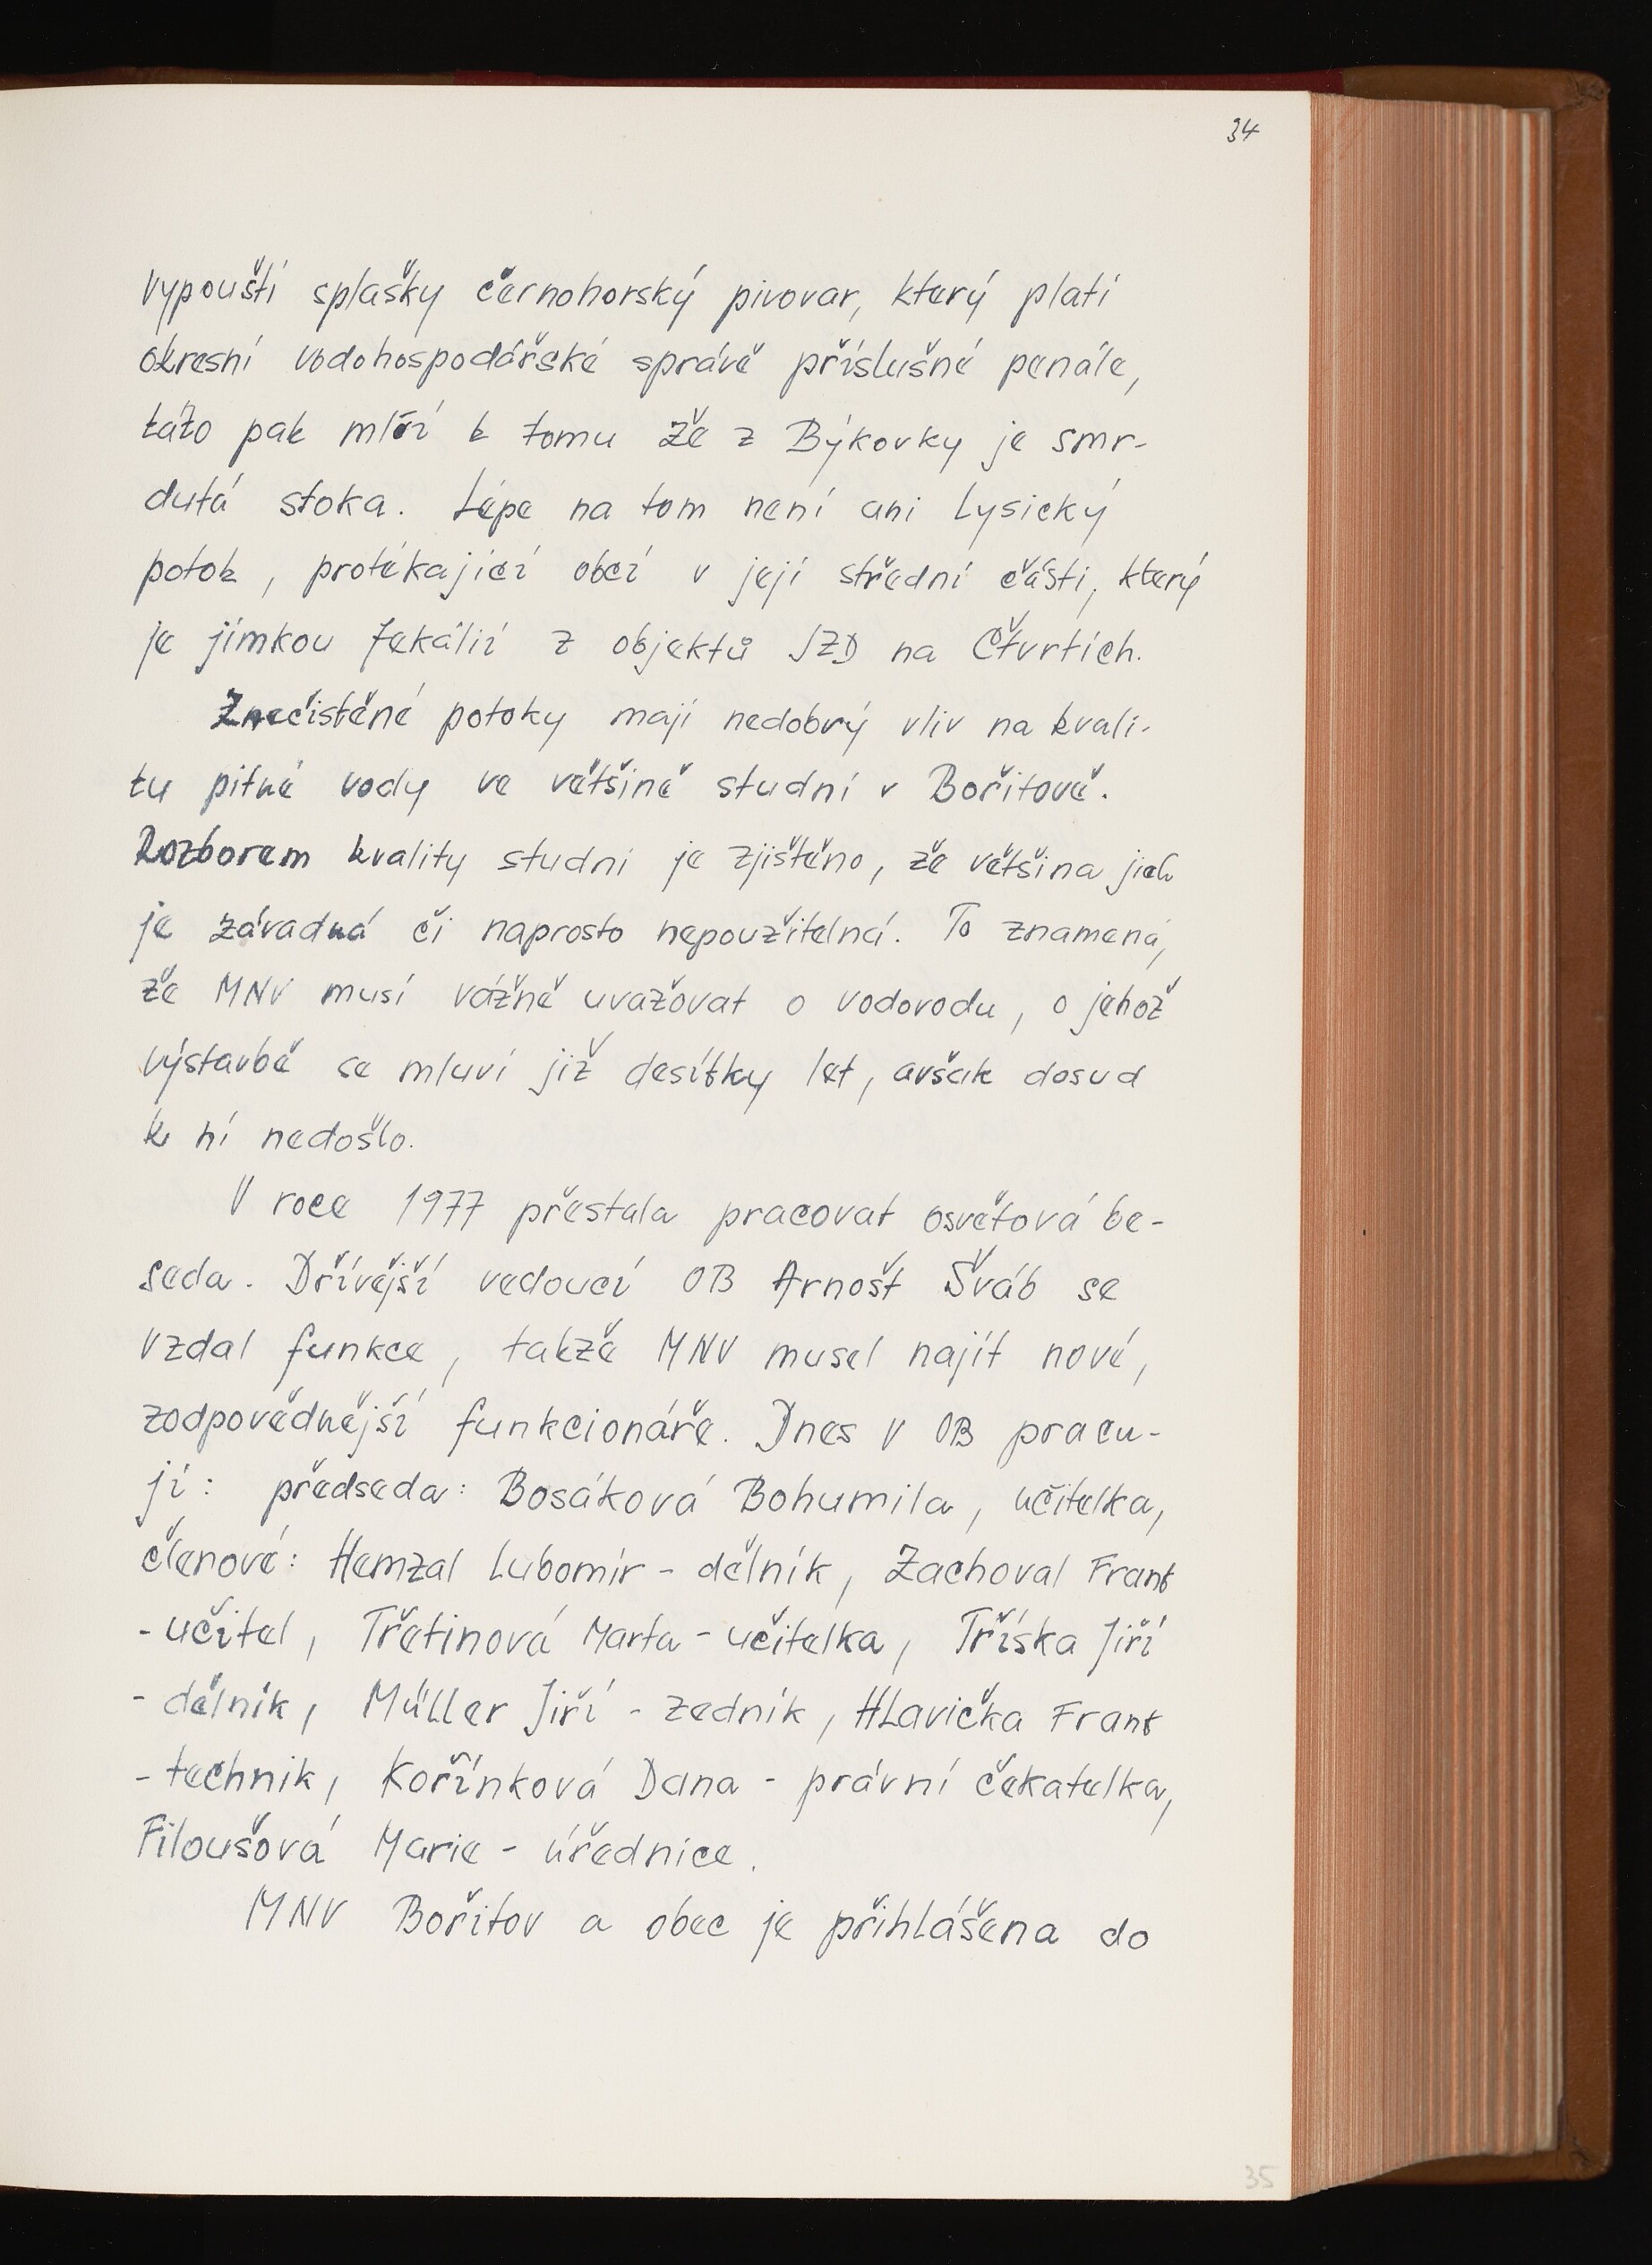 34
vypouští splašky černohorský pivovar, který platí
okresní vodohospodářské správě příslušné penále,
táto pak mlčí k tomu že z Býkovky je smr-
dutá stoka. Lépe na tom není ani Lysický
potok, protékající obcí v její střední části, který
je jímkou fekálií z objektů JZD na Čtvrtích.
Znečistěné potoky mají nedobrý vliv na kvali-
tu pitné vody ve většině studní v Bořitově.
Rozborem kvality studní je zjištěno, že většina jich
je závadná či naprosto nepoužitelná. To znamená,
že MNV musí vážně uvažovat o vodovodu, o jehož
výstavbě se mluví již desítky let, avšak dosud
k ní nedošlo.
V roce 1977 přestala pracovat osvětová be-
seda. Dřívější vedoucí OB Arnošt Šváb se
vzdal funkce, takže MNV musel najít nové,
zodpovědnější funkcionáře. Dnes v OB pracu-
jí: předseda: Bosáková Bohumila, učitelka,
členové: Hemzal Lubomír - dělník, Zachoval Frant
- učitel, Třetinová Marta - učitelka, Tříska Jiří
- dělník, Müller Jiří - zedník, Hlavička Frant
- technik, Kořínková Dana - právní čekatelka,
Filoušová Marie - úřednice.
MNV Bořitov a obec je přihlášena do
35